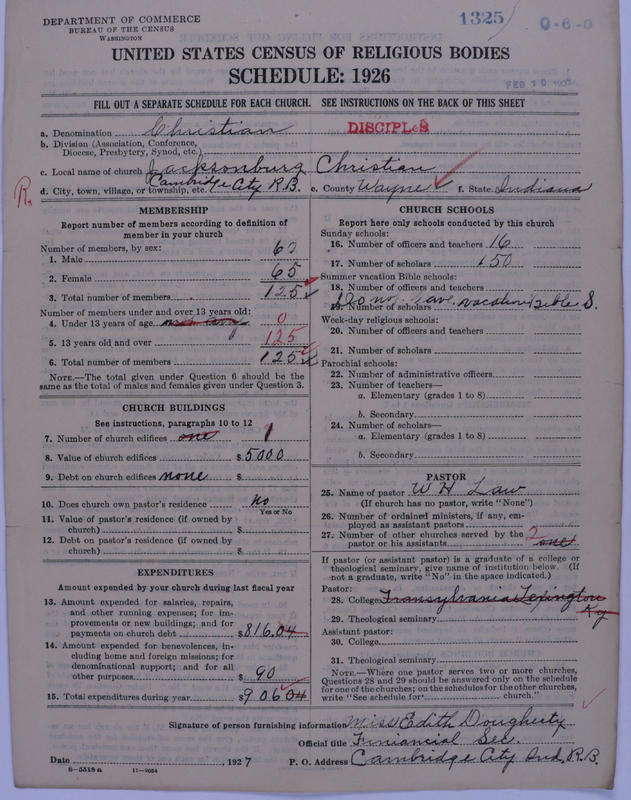 DEPARTMENT OF COMMERCE
BUREAU OF THE CENSUS
WASHINGTON
1325
0-6-0
UNITED STATES CENSUS OF RELIGIOUS BODIES
SCHEDULE: 1926
FEB 10
FILL OUT A SEPARATE SCHEDULE FOR EACH CHURCH. SEE INSTRUCTIONS ON THE BACK OF THIS SHEET
a. Denomination Christian DISCIPLES
b. Division (Association, Conference,
Diocese, Presbytery, Synod, etc.)
c. Local name of church Jacksonburg Christian
d. City, town, village, or township, etc. Cambridge City R.B. e. County Wayne f. State Indiana
R.
MEMBERSHIP
Report number of members according to definition of
member in your church
Number of members, by sex:
1. Male 60
2. Female 65
3. Total number of members 125
Number of members under and over 13 years old:
4. Under 13 years of age 0
5. 13 years old and over 125
6. Total number of members 125
NOTE.—The total given under Question 6 should be
same as the total of males and females given under Question 3.
CHURCH BUILDINGS
See instructions, paragraphs 10 to 12
7. Number of church edifices one 1
8. Value of church edifices $5000
9. Debt on church edifices none $
10. Does church own pastor's residence no
Yes or No
11. Value of pastor's residence (if owned by
church) $
12. Debt on pastor's residence (if owned by
church) $
EXPENDITURES
Amount expended by your church during last fiscal year
13. Amount expended for salaries, repairs,
and other running expenses; for im-
provements or new buildings; and for
payments on church debt $816.04
14. Amount expended for benevolences, in-
cluding home and foreign missions; for
denominational support; and for all
other purposes $90
15. Total expenditures during year $906.04
CHURCH SCHOOLS
Report here only schools conducted by this church
Sunday schools:
16. Number of officers and teachers 16
17. Number of scholars 150
Summer vacation Bible schools:
18. Number of officers and teachers
19. Number of scholars
Do not have vacation Bible S.
Week-day religious schools:
20. Number of officers and teachers
21. Number of scholars
Parochial schools:
22. Number of administrative officers
23. Number of teachers—
a. Elementary (grades 1 to 8)
b. Secondary
24. Number of scholars—
a. Elementary (grades 1 to 8)
b. Secondary
PASTOR
25. Name of pastor W H Law
(If church has no pastor, write "None")
26. Number of ordained ministers, if any, em-
ployed as assistant pastors
27. Number of other churches served by the
pastor or his assistants 2 one
If pastor (or assistant pastor) is a graduate of a college or
theological seminary, give name of institution below. (If
not a graduate, write "No" in the space indicated.)
Pastor:
28. College Transylvania Lexington Ky
29. Theological seminary
Assistant pastor:
30. College
31. Theological seminary
NOTE.—Where one pastor serves two or more churches,
Questions 28 and 29 should be answered only on the schedule
for one of the churches; on the schedules for the other churches,
write "See schedule for church."
Signature of person furnishing information Miss Edith Dougherty
Official title Finiancial Sec.
Date , 1927 P. O. Address Cambridge City Ind. R.B.
8-5518a 11-9054